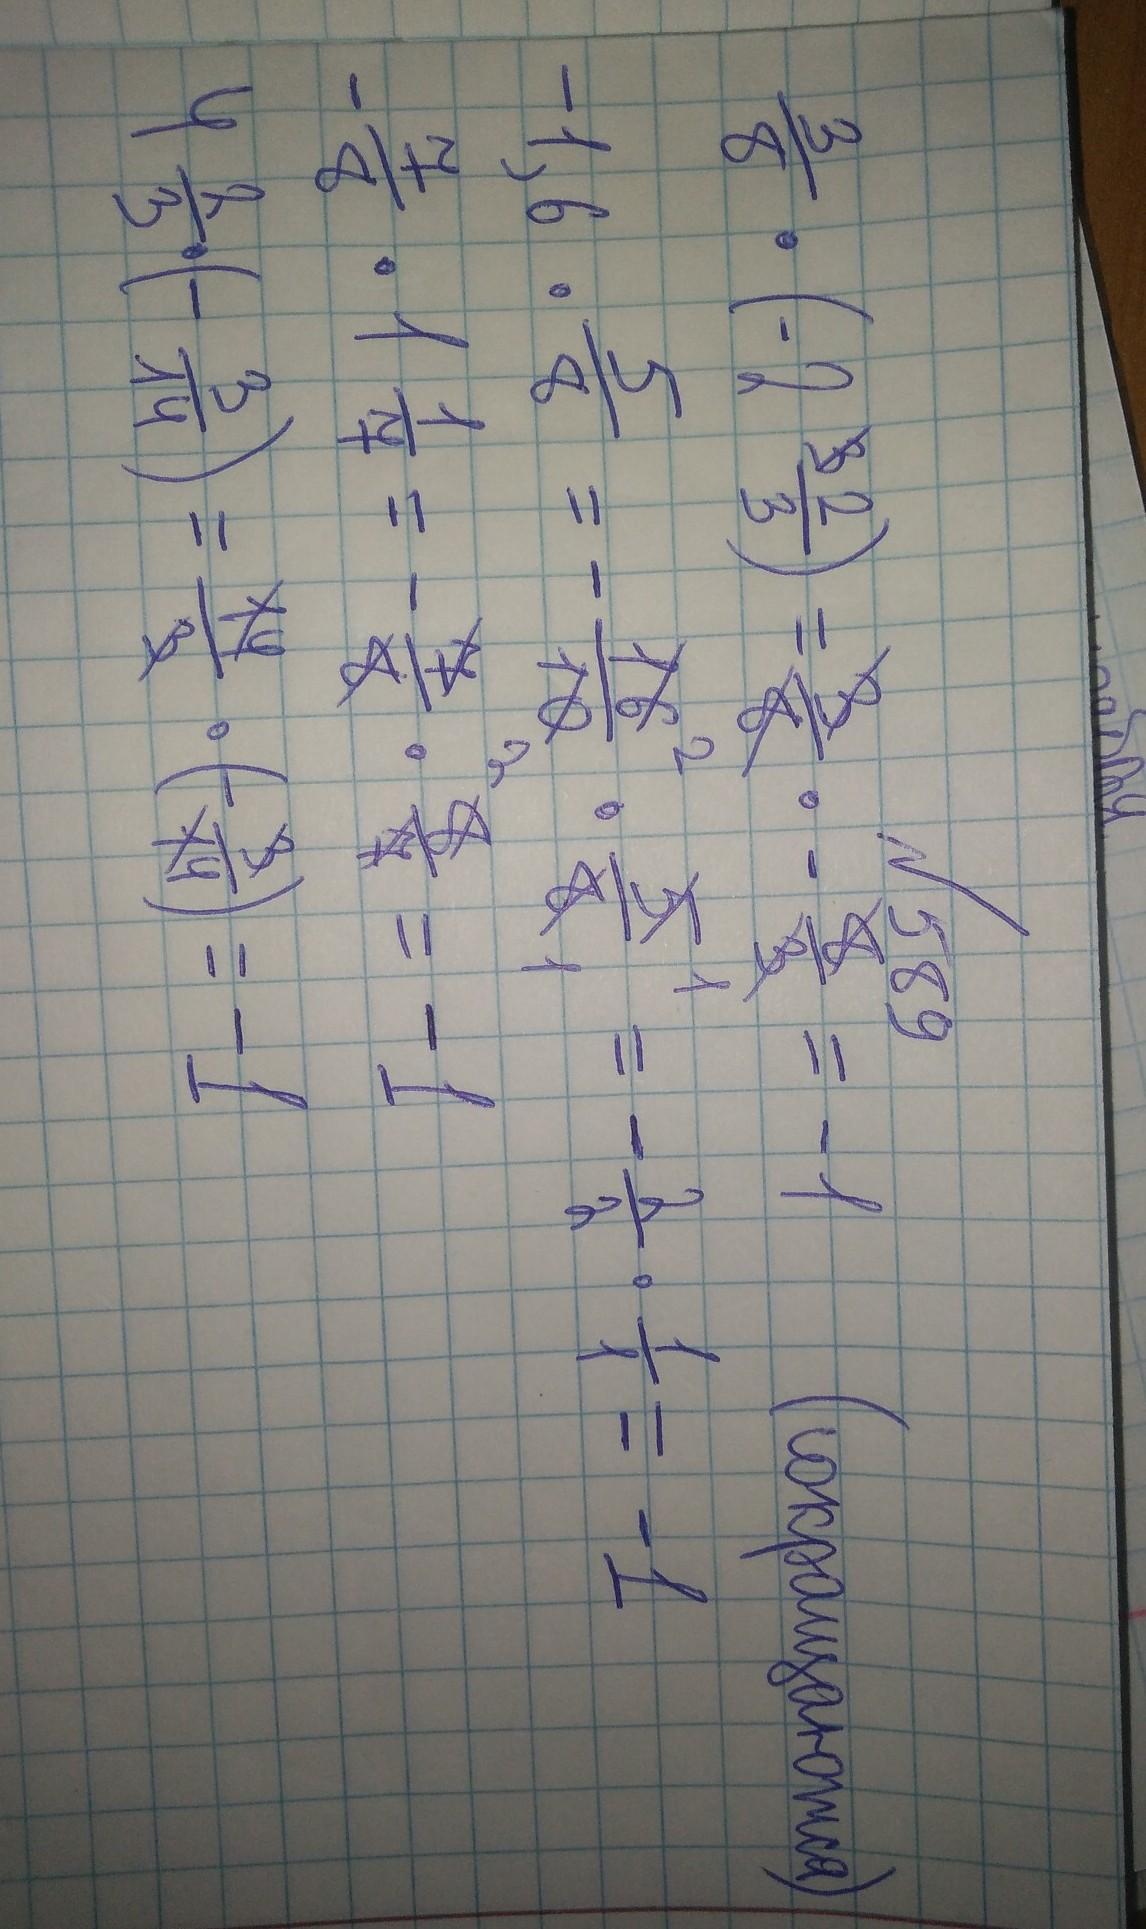 № 589
3/8 · (-2 2/3) = 3/8 · - 8/3 = -1 (сокращаются)
-1,6 · 5/8 = - 16/10 2 2 · 5/8 1 1 = - 2/2 · 1/1 = -1
- 7/8 · 1 1/7 = - 7/8 · 8/7 = -1
4 2/3 · (- 3/14) = 14/3 · (- 3/14) = -1